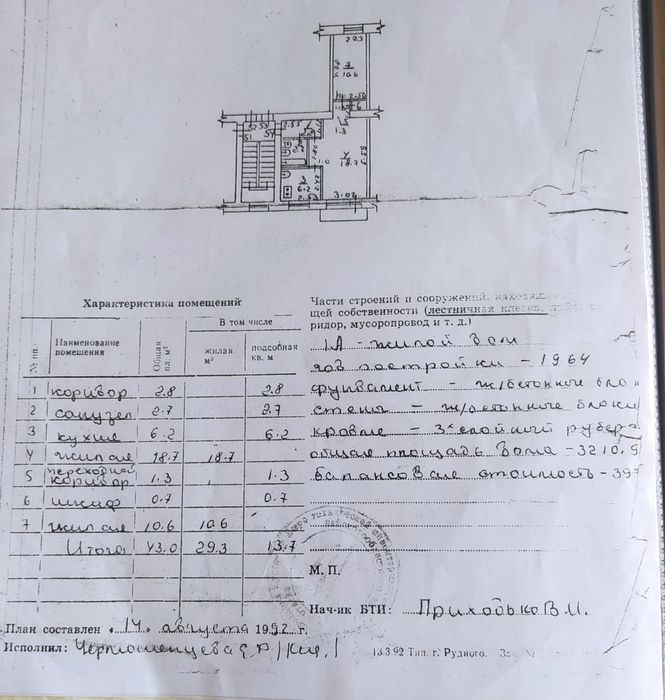 2.93
7
10.6
2.55
1.3
4
18.7
1.0
3
6.2
3.02
Характеристика помещений
№ пп.
Наименование помещения
Общая пл. м²
В том числе
жилая м²
подсобная кв. м
1 коридор 2.8 2.8
2 санузел 2.7 2.7
3 кухня 6.2 6.2
4 жилая 18.7 18.7
5 переходной коридор 1.3 1.3
6 шкаф 0.7 0.7
7 жилая 10.6 10.6
Итого 43.0 29.3 13.7
План составлен «14» августа 1992 г.
Исполнил:
Части строений и сооружений, находящ
щей собственности (лестничная клетка,
ридор, мусоропровод и т. д.)
1А - жилой дом
год постройки - 1964
фундамент - ж/бетонные блоки
стены - ж/бетонные блоки
кровля - 3х слойный рубер
общая площадь дома - 3210.9
балансовая стоимость - 397
М. П.
Нач-ик БТИ: Приходько В.И.
13.3.92 Тип. г. Рудного. Зак. №